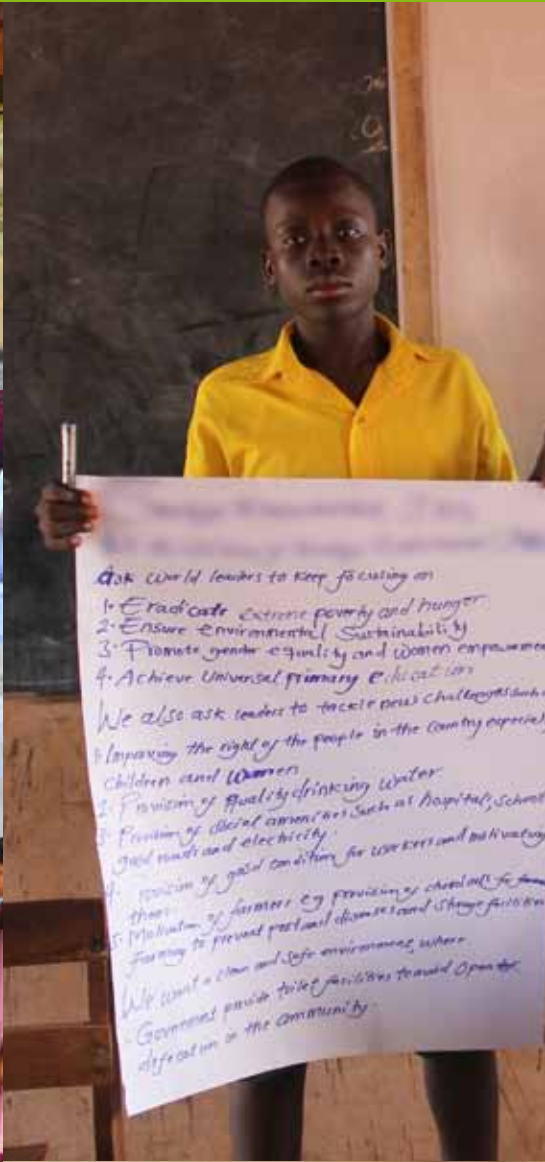 ask world leaders to keep focusing on
1. Eradicate extreme poverty and hunger
2. Ensure environmental Sustainability
3. Promote gender equality and women
4. Achieve Universal primary education
We also ask leaders to tackle new challenges such
1. Improving the right of the people in the country
children and women
2. Provision of quality drinking water
3. Provision of social amenities such as hospital, school
good roads and electricity.
4. provision of good condition for workers and motivating
them.
5. Motivation of farmers eg provision of chemicals for
farming to prevent pest and diseases and storage facilities
We want a clean and safe environment, where
Government provide toilet facilities to avoid Open
defecation in the community.